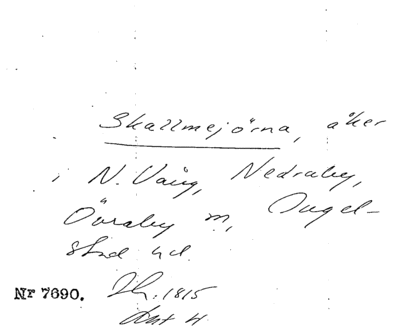 Skallmejörna, åker
i N. Vång, Nedraby,
Övraby sn, Ingel-
stad hd.
Nr 7690. Lh. 1815
Akt 4